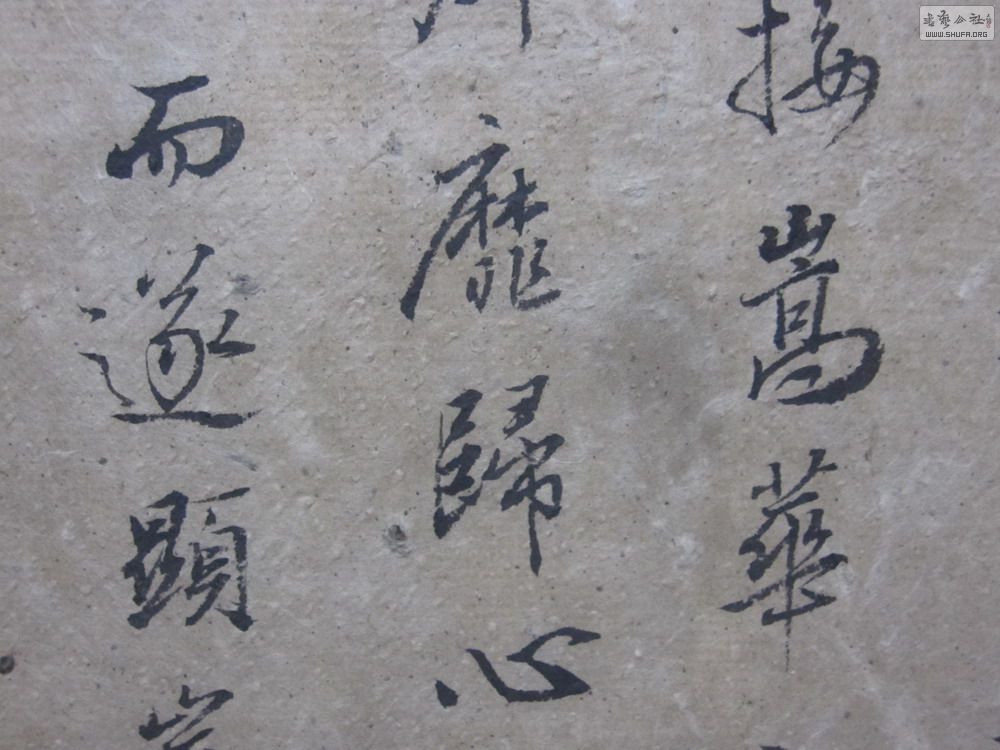 接嵩華
靡歸心
而遂顯
書藝公社
WWW.SHUFA.ORG